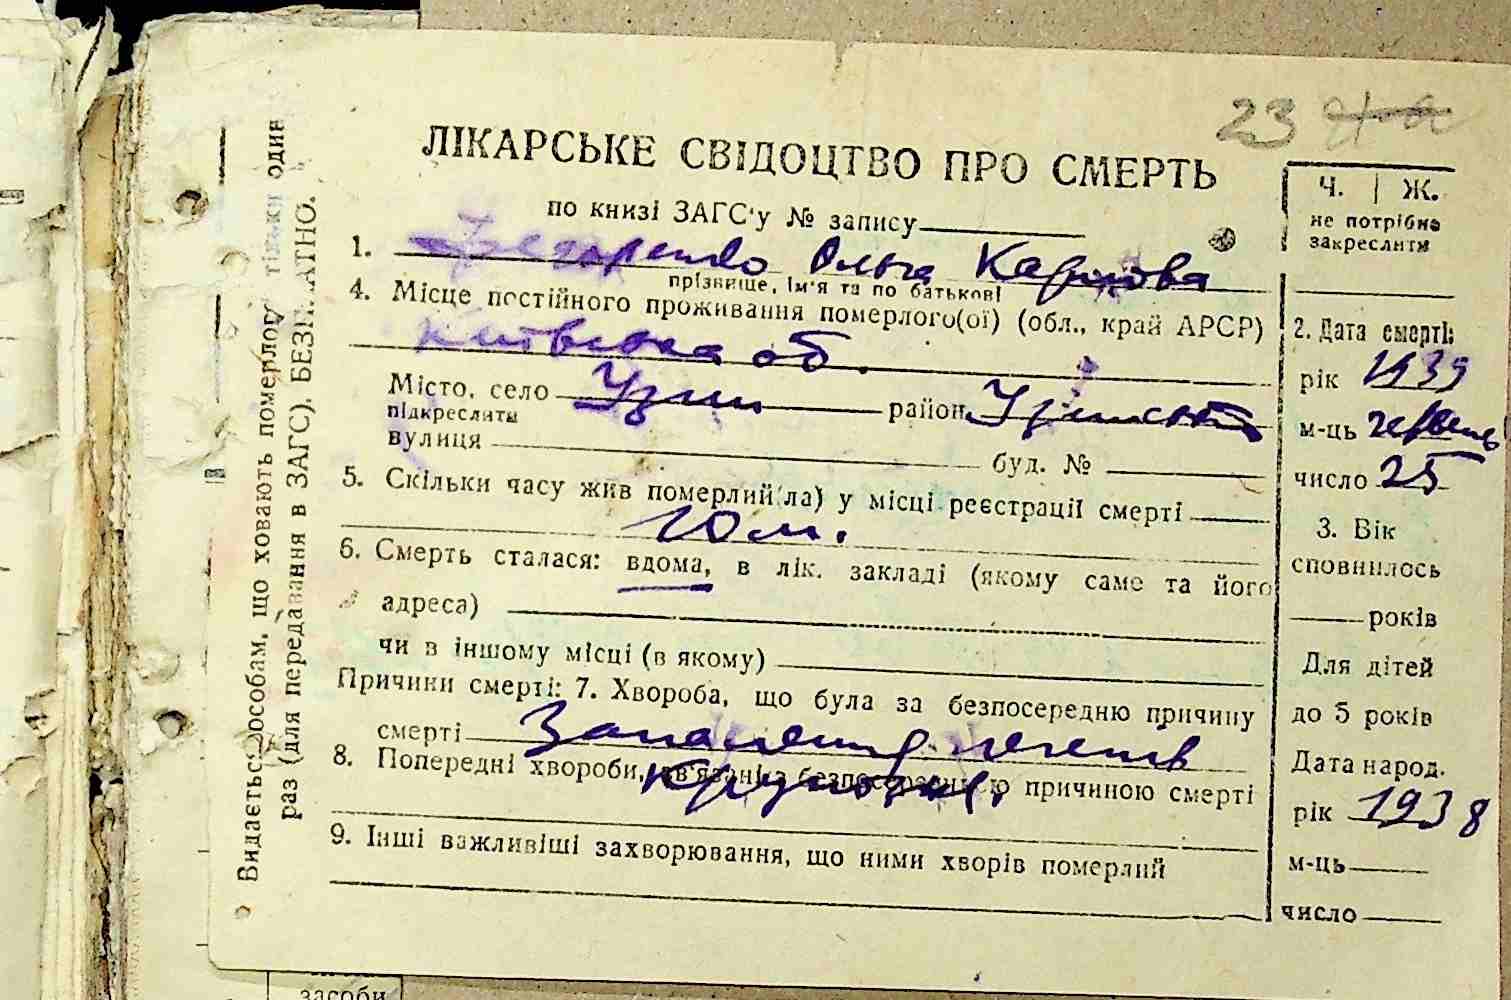 23
ЛІКАРСЬКЕ СВІДОЦТВО ПРО СМЕРТЬ
по книзі ЗАГС'у № запису
1. Ольга Карпова
прізвище, ім'я та по батькові
4. Місце постійного проживання померлого(ої) (обл., край АРСР)
Київська об.
Місто, село Узин район Узинськ
підкреслити
вулиця буд. №
5. Скільки часу жив померлий(ла) у місці реєстрації смерті
10 м.
6. Смерть сталася: вдома, в лік. закладі (якому саме та його
адреса)
чи в іншому місці (в якому)
Причини смерті: 7. Хвороба, що була за безпосередню причину
смерті Запалення легенів
8. Попередні хвороби, зв'язані з безпосередньою причиною смерті
Крупозн.
9. Інші важливіші захворювання, що ними хворів померлий
Ч. | Ж.
не потрібне
закреслити
2. Дата смерті:
рік 1939
м-ць червень
число 25
3. Вік
сповнилось
років
Для дітей
до 5 років
Дата народ.
рік 1938
м-ць
число
Видається особам, що ховають померлого тільки один
раз (для передавання в ЗАГС). БЕЗПЛАТНО.
засоби